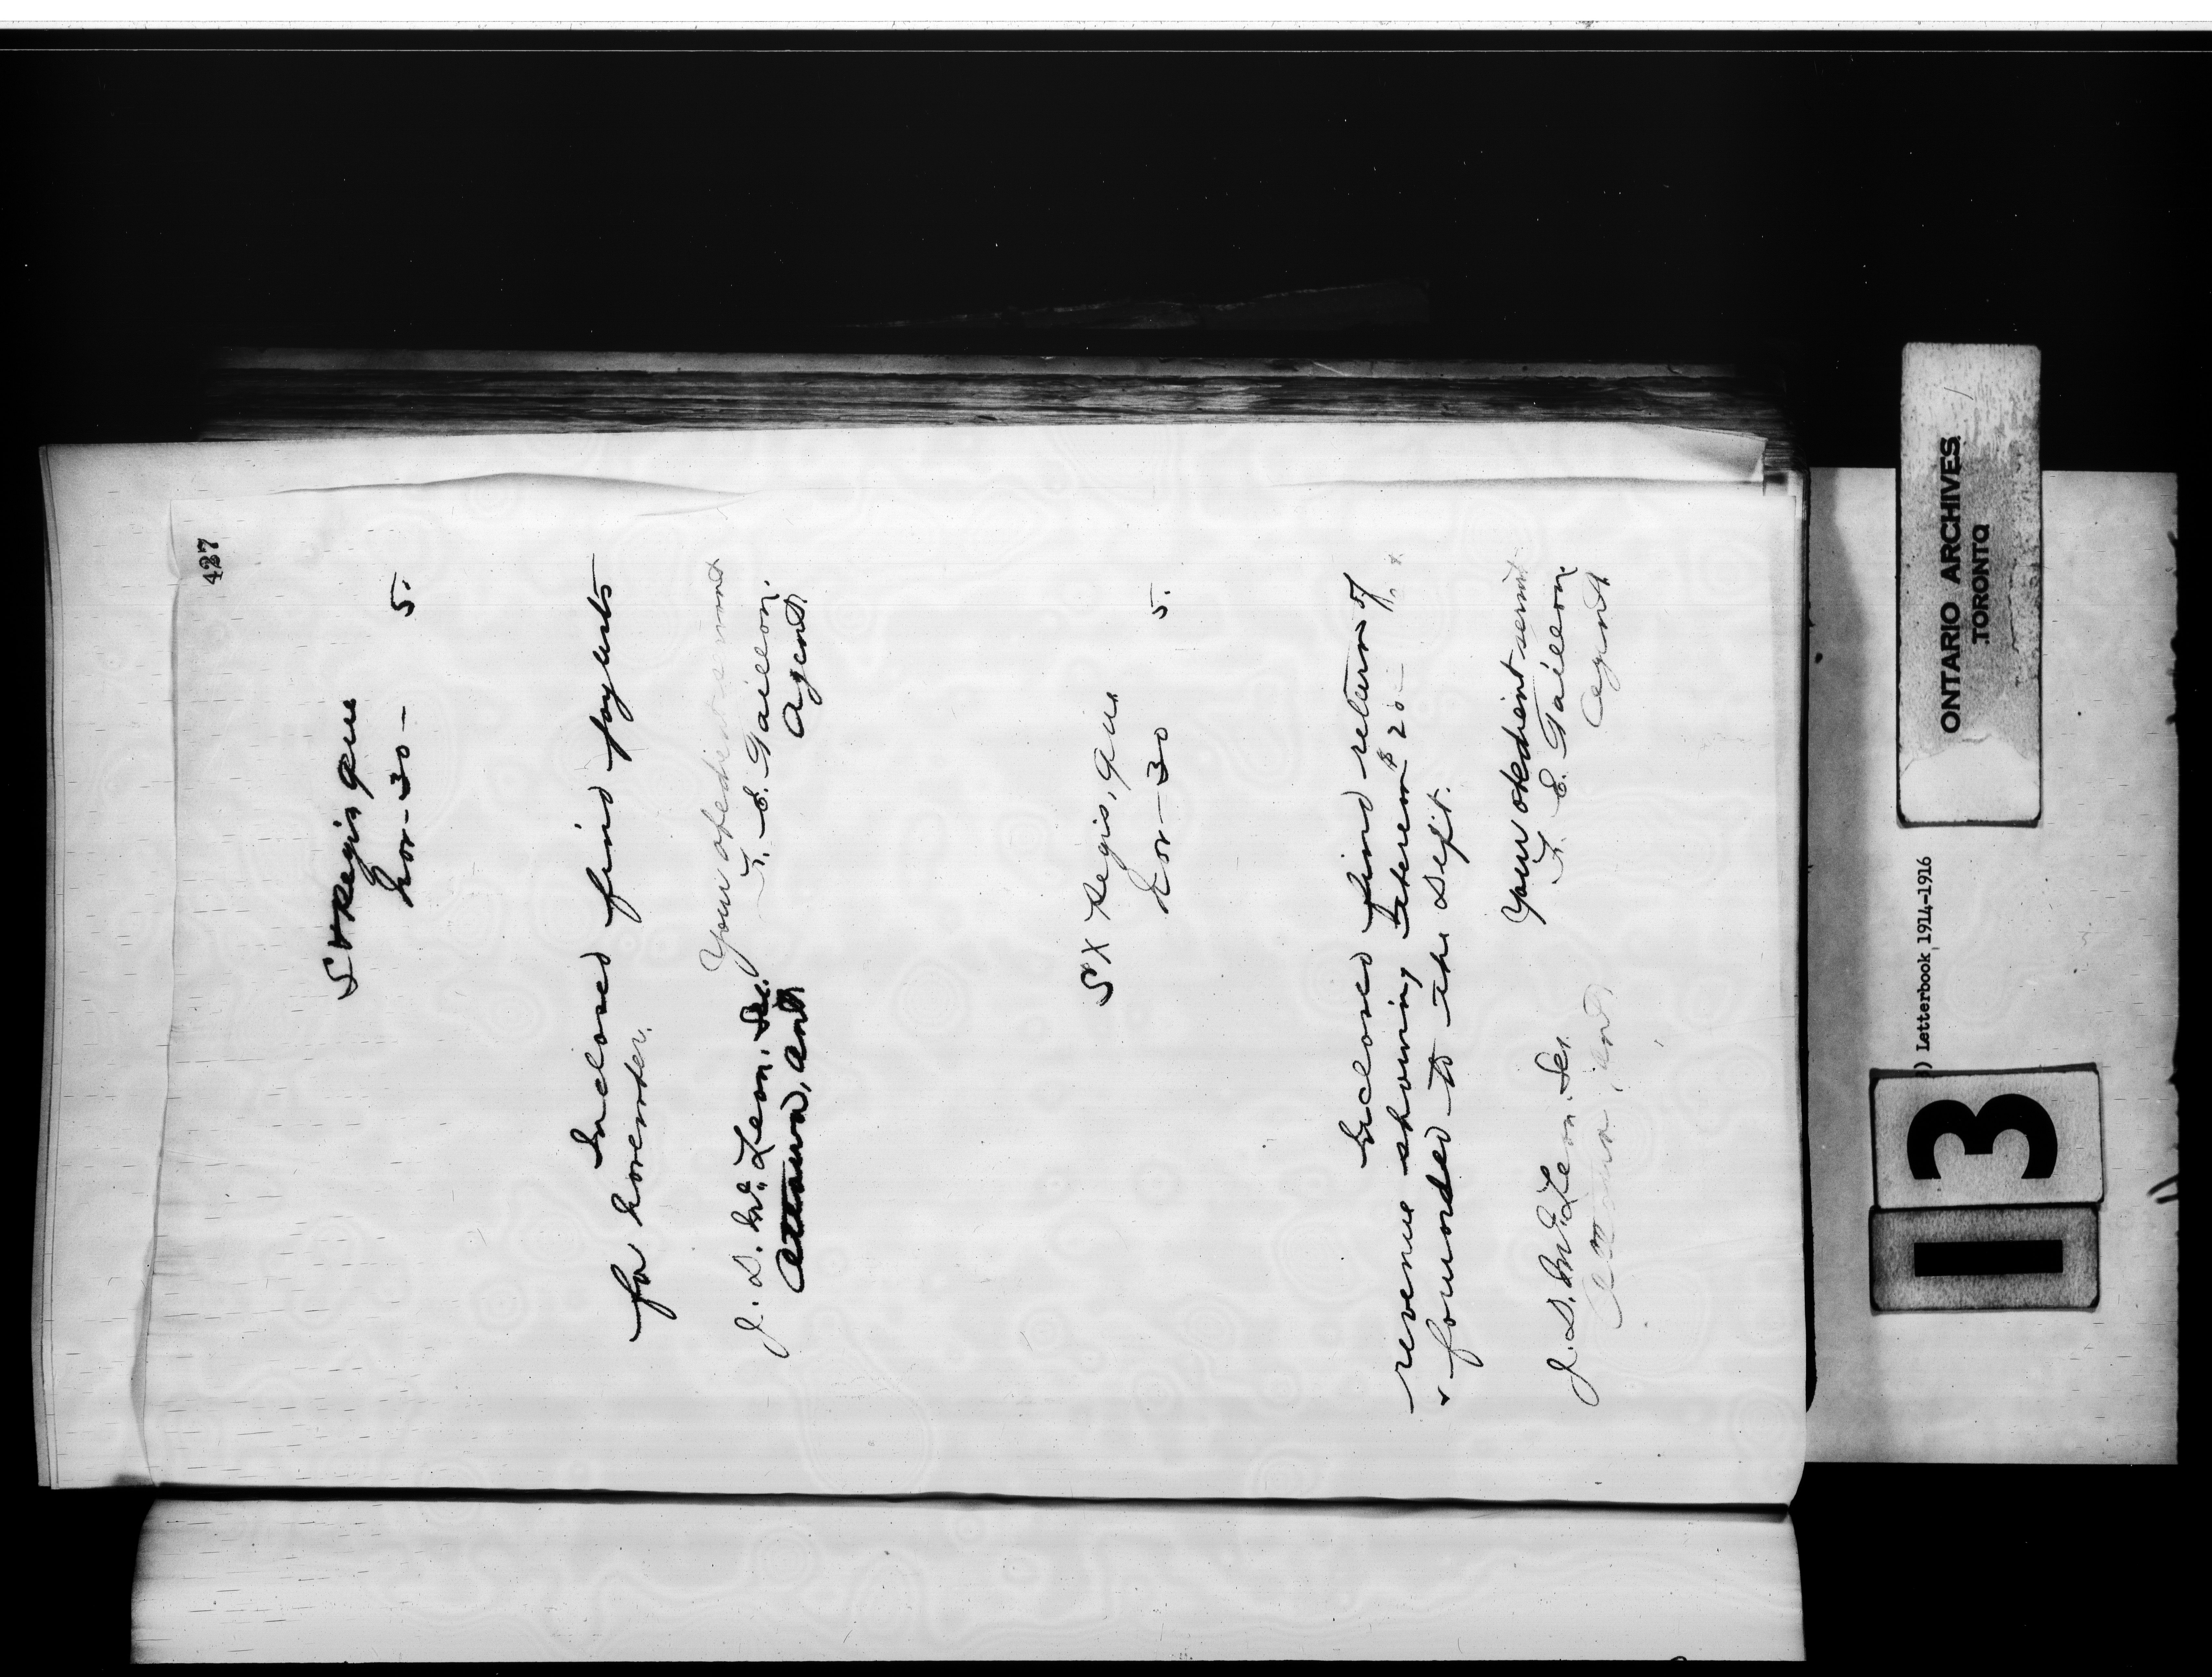 427
St Regis Que
Nov-30- 5.
Inclosed find payts
for November.
Your obedient servant
F. E. Taillon.
Agent.
J. D. McLean. Sec.
Ottawa, Ont
St Regis, Que.
Nov-30 5.
Inclosed find return of
revenue showing Interim $20
forwarded to the Dept.
Your obedient servant
F. E. Taillon.
Agent
J. D. McLean. Sec.
Ottawa, Ont
ONTARIO ARCHIVES
TORONTO
) Letterbook 1914-1916
13